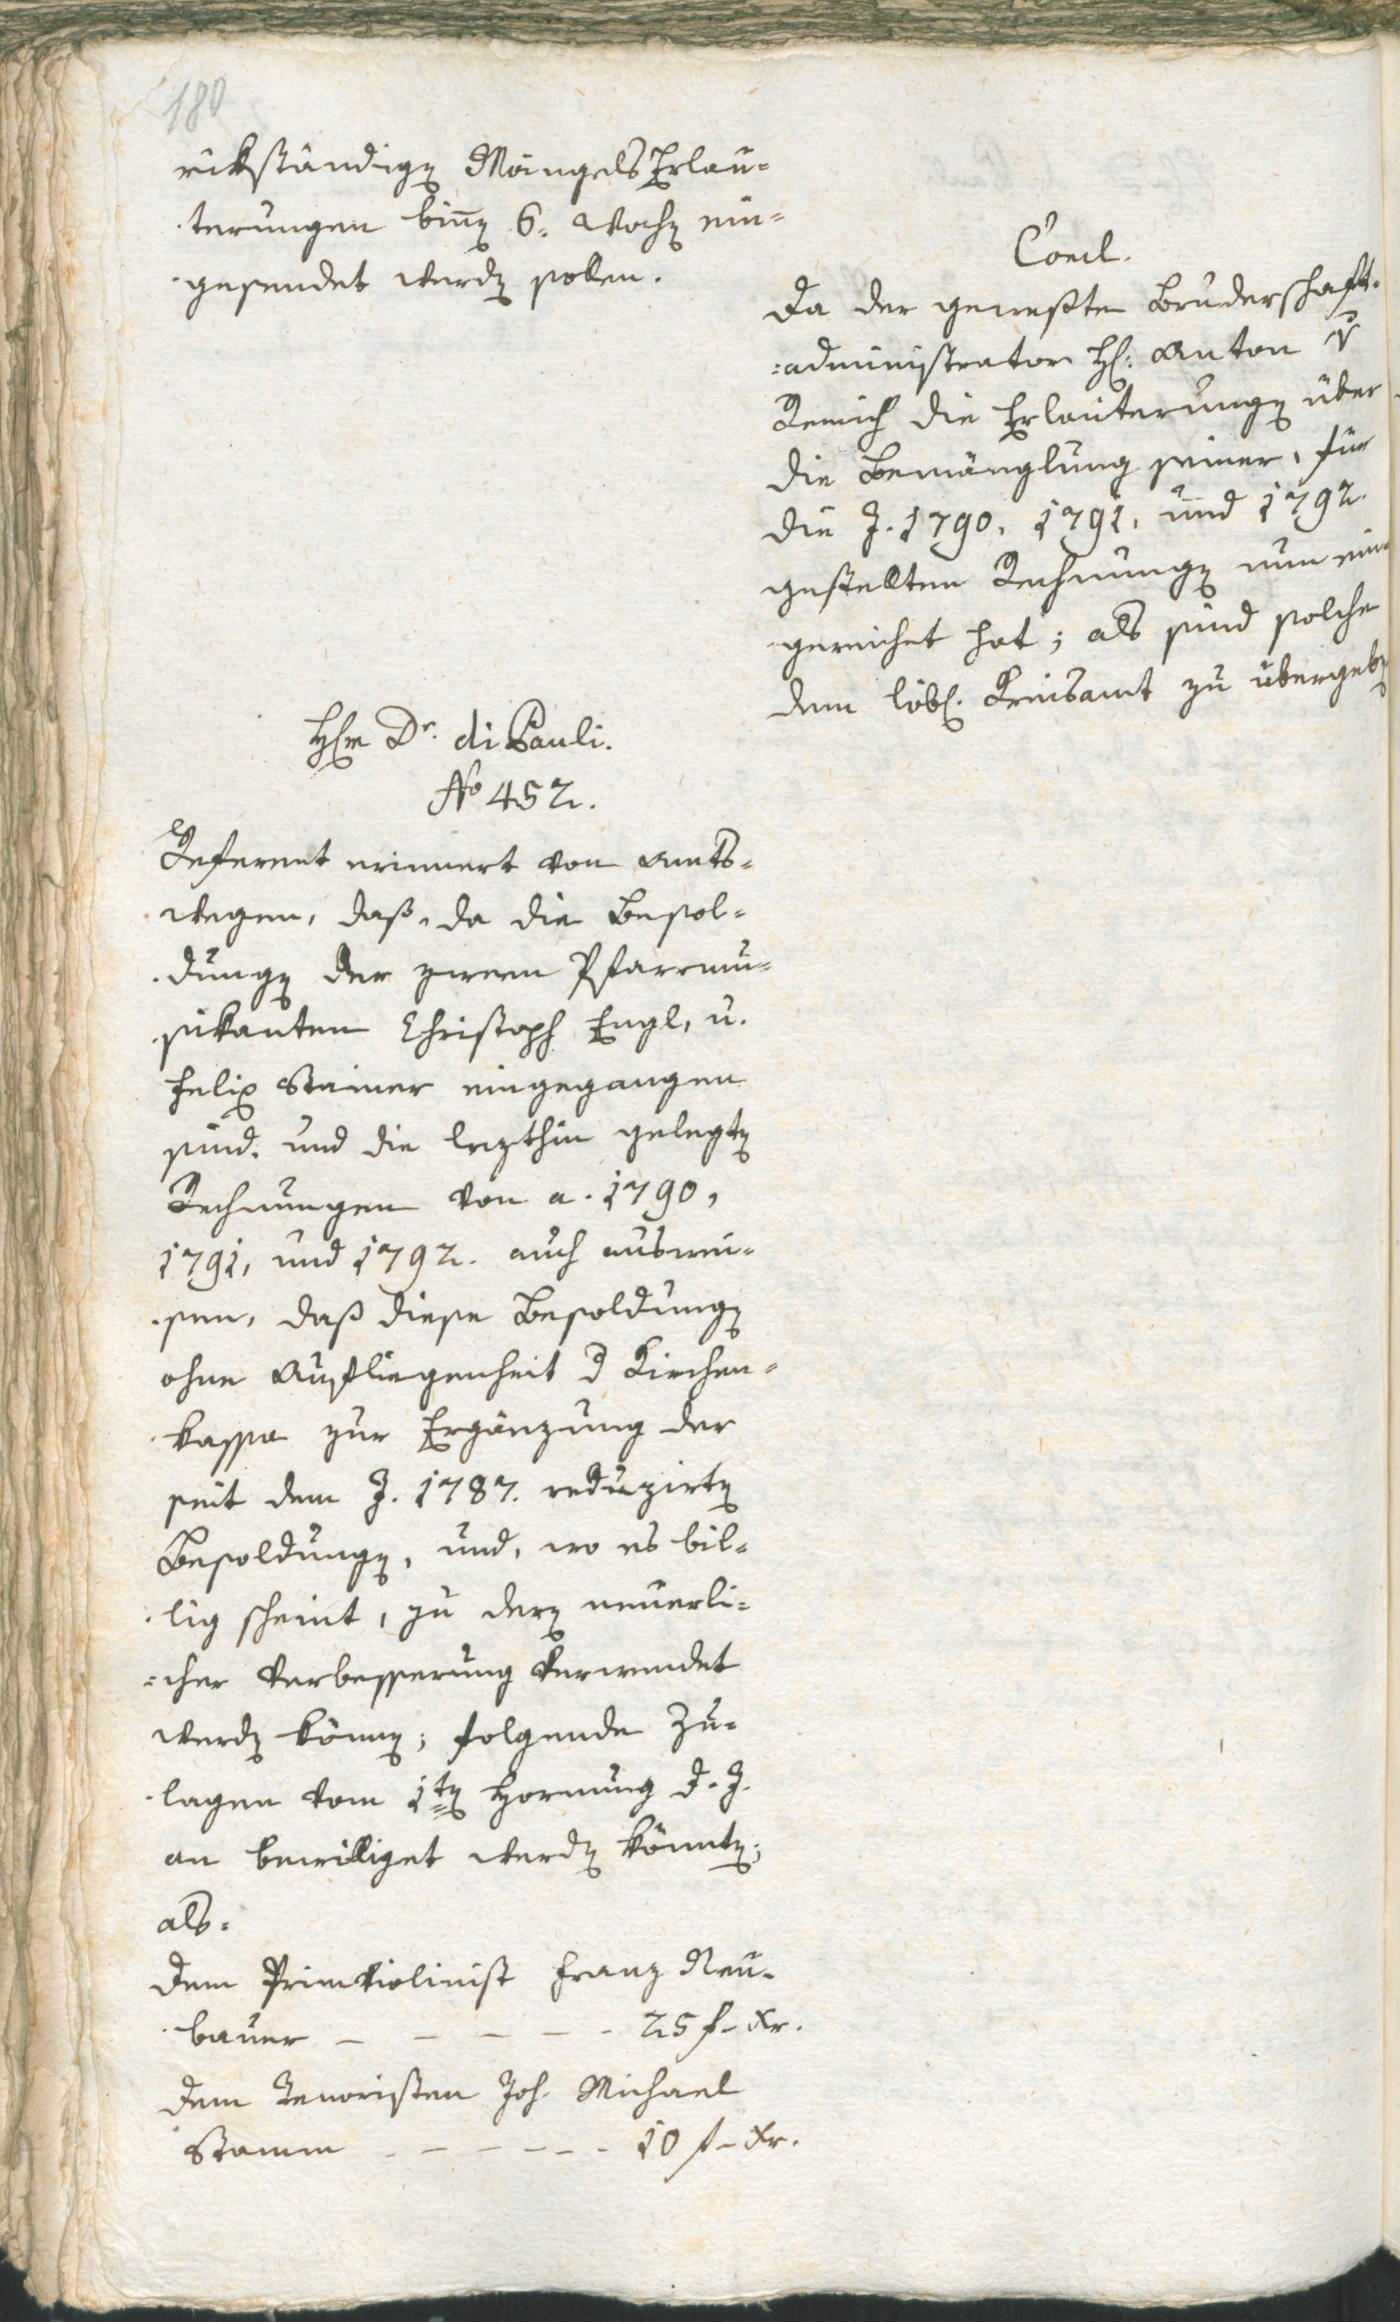 180
rükständigen Mängels Erlau-
terungen binnen 6. Wochen ein-
gesendet werden sollen.
Concl.
Da der geweßte Bruderschaft-
administrator H: Anton v
Remich die Erläuterungen über
die Bemänglung seiner, für
die J. 1790, 1791, und 1792.
gestellten Rechnungen nun ein-
gereichet hat; als sind solche
dem löbl. Kreisamt zu übergeben
Herr Dr. di Pauli.
No 452.
Referent erinnert von Amts-
wegen, daß, da die Besol-
dungen der zween Pfarrmu-
sikanten Christoph Engl, u.
Felix Steiner eingegangen
sind. und die lezthin gelegten
Rechnungen von a. 1790,
1791, und 1792. auch auswei-
sen, daß diese Besoldungen
ohne Aufliegenheit d Kirchen-
kassa zur Ergänzung der
seit dem J. 1787. reduzirten
Besoldungen, und, wo es bil-
lig scheint, zu deren neuerli-
cher Verbesserung verwendet
werden können; folgende Zu-
lagen vom 1ten Hornung d. J.
an bewilliget werden könnten;
als.
Dem Primviolinist Franz Neu-
bauer - - - - - 25 f - Xr.
Dem Tenoristen Joh. Michael
Stamm - - - - - - 10 f - Xr.